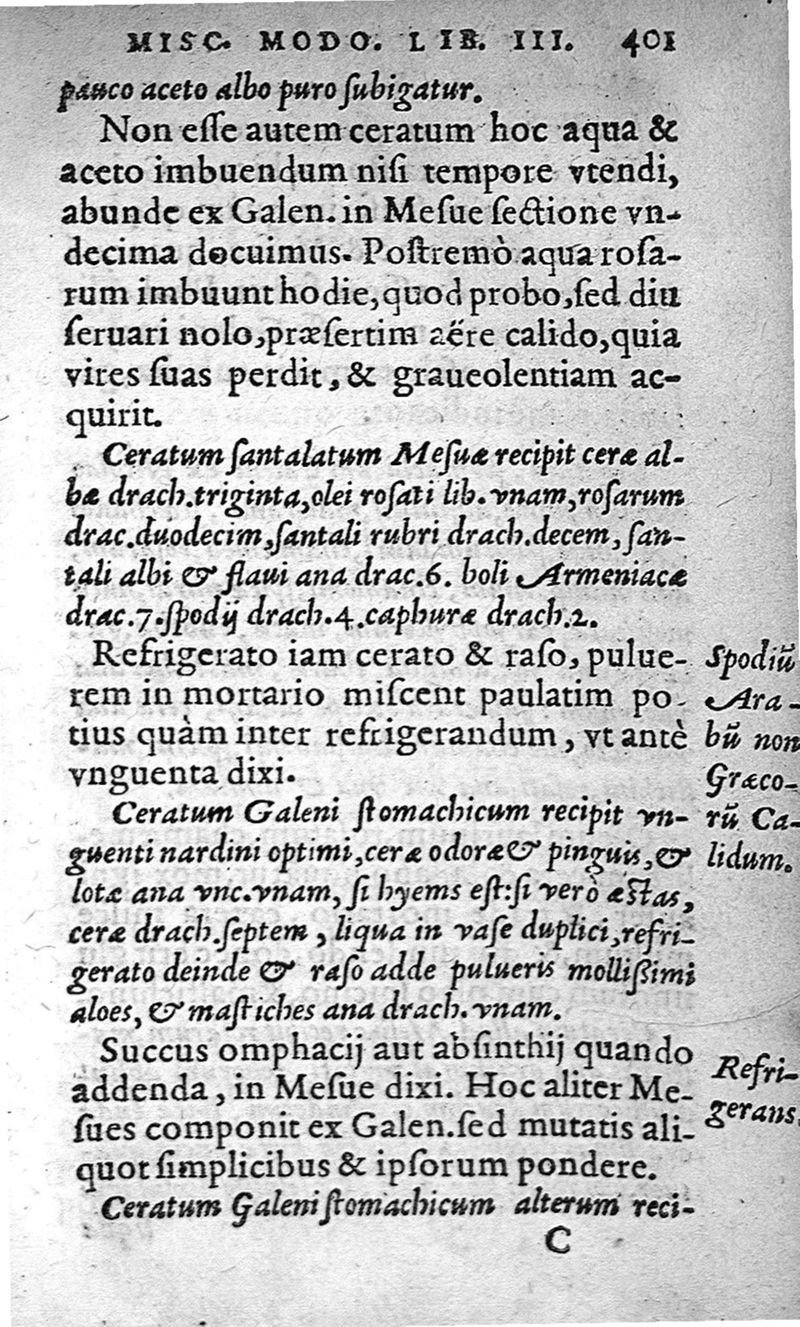 MISC. MODO. LIB. III. 401
pauco aceto albo puro ſubigatur.
Non eſſe autem ceratum hoc aqua &
aceto imbuendum niſi tempore vtendi,
abunde ex Galen. in Meſue ſectione vn-
decima docuimus. Poſtremò aqua roſa-
rum imbuunt hodie, quod probo, ſed diu
ſeruari nolo, præſertim aëre calido, quia
vires ſuas perdit, & graueolentiam ac-
quirit.
Ceratum ſantalatum Meſuæ recipit ceræ al-
bæ drach. triginta, olei roſati lib. vnam, roſarum
drac. duodecim, ſantali rubri drach. decem, ſan-
tali albi & flaui ana drac. 6. boli Armeniacæ
drac. 7. ſpodij drach. 4. caphuræ drach. 2.
Refrigerato iam cerato & raſo, pulue-
rem in mortario miſcent paulatim po-
tius quàm inter refrigerandum, vt antè
vnguenta dixi.
Spodiũ
Ara-
bũ non
Græco-
rũ Ca-
lidum.
Ceratum Galeni ſtomachicum recipit vn-
guenti nardini optimi, ceræ odoræ & pinguis, &
lotæ ana vnc. vnam, ſi hyems eſt: ſi verò æſtas,
ceræ drach. ſeptem, liqua in vaſe duplici, refri-
gerato deinde & raſo adde pulueris molliſſimi
aloes, & maſtiches ana drach. vnam.
Succus omphacij aut abſinthij quando
addenda, in Meſue dixi. Hoc aliter Me-
ſues componit ex Galen. ſed mutatis ali-
quot ſimplicibus & ipſorum pondere.
Refri-
gerans.
Ceratum Galeni ſtomachicum alterum reci-
C